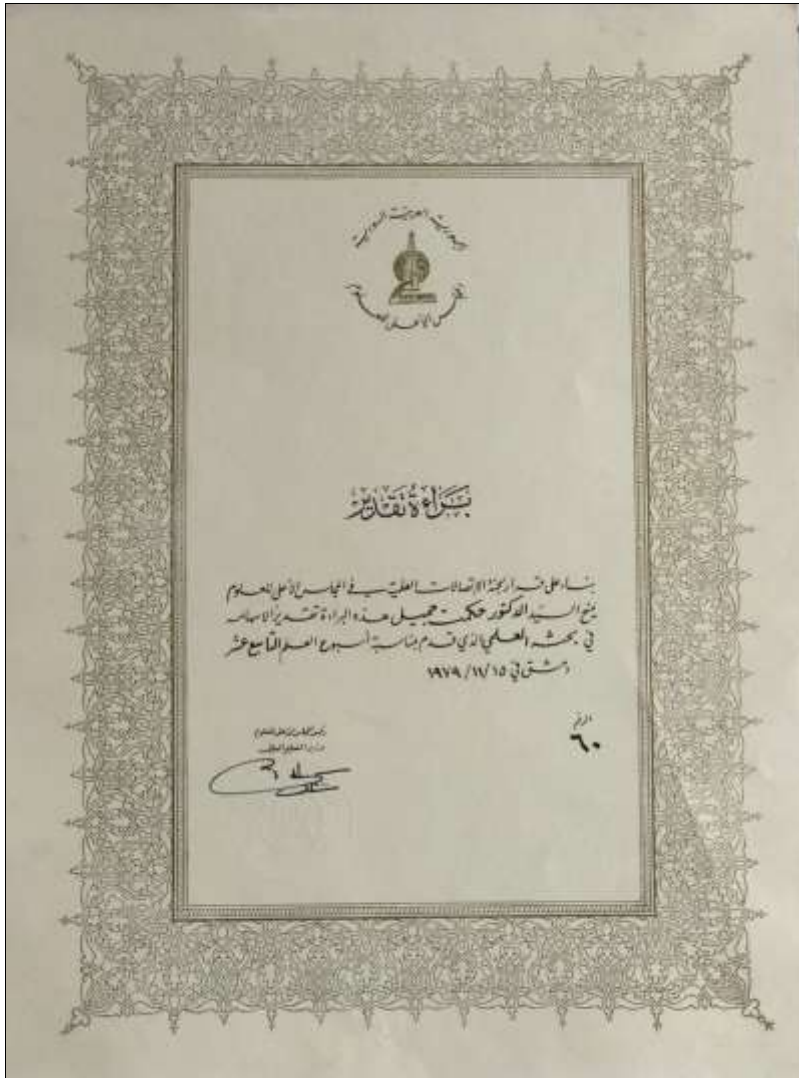 الجمهورية العربية السورية
المجلس الأعلى للعلوم
بَرَاءَةُ تَقْدِيرٍ
بناء على قرار لجنة الاتصالات العلمية في المجلس الأعلى للعلوم
يمنح السيد الدكتور حكمت جميل هذه البراءة تقديراً لاسهامه
في بحثه العلمي الذي قدم بمناسبة أسبوع العلم التاسع عشر
دمشق في ١٥/١١/١٩٧٩
الرقم
٦٠
رئيس المجلس الأعلى للعلوم
وزير التعليم العالي